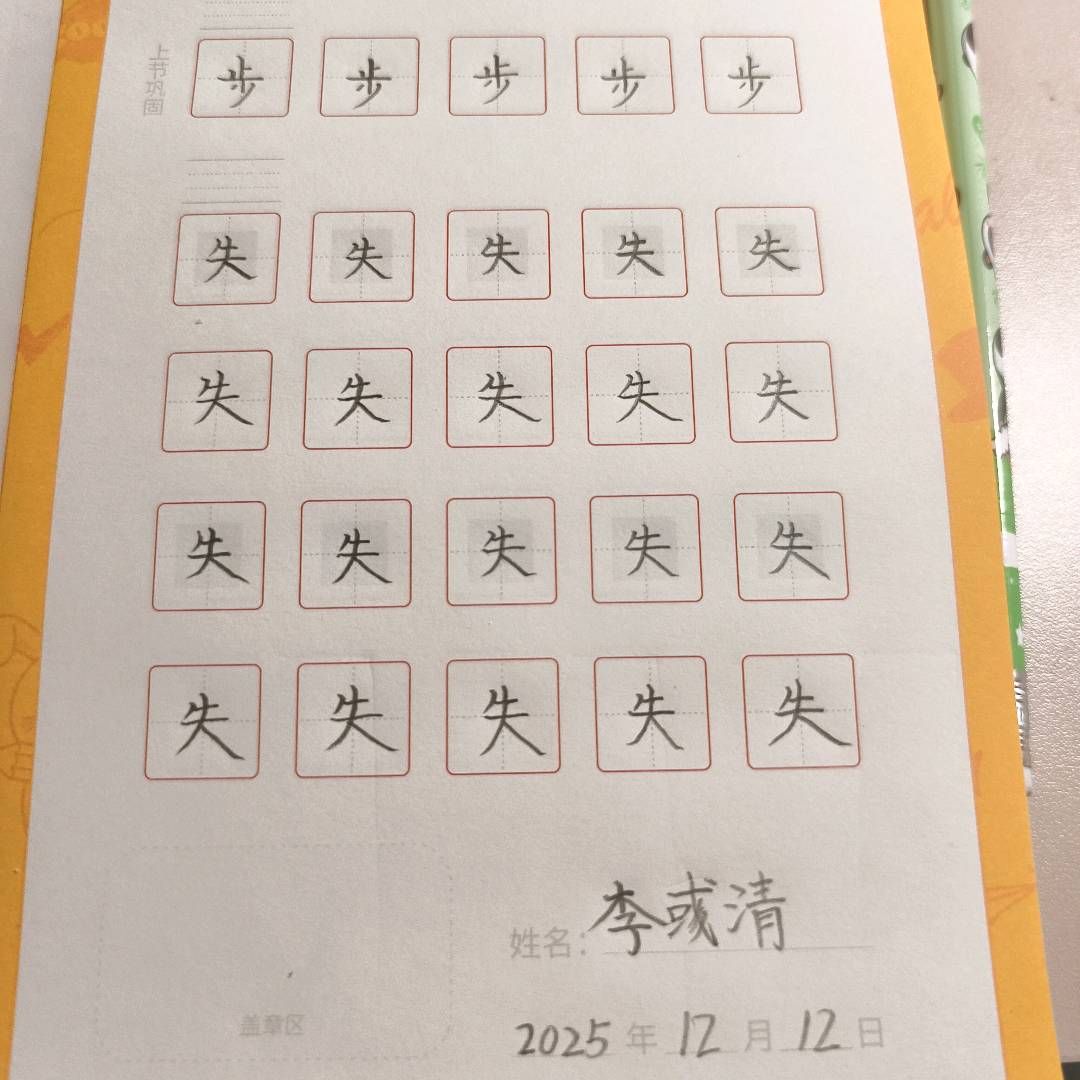 上书巩固
步 步 步 步 步
失 失 失 失 失
失 失 失 失 失
失 失 失 失 失
失 失 失 失 失
姓名：李彧清
盖章区
2025 年 12 月 12 日